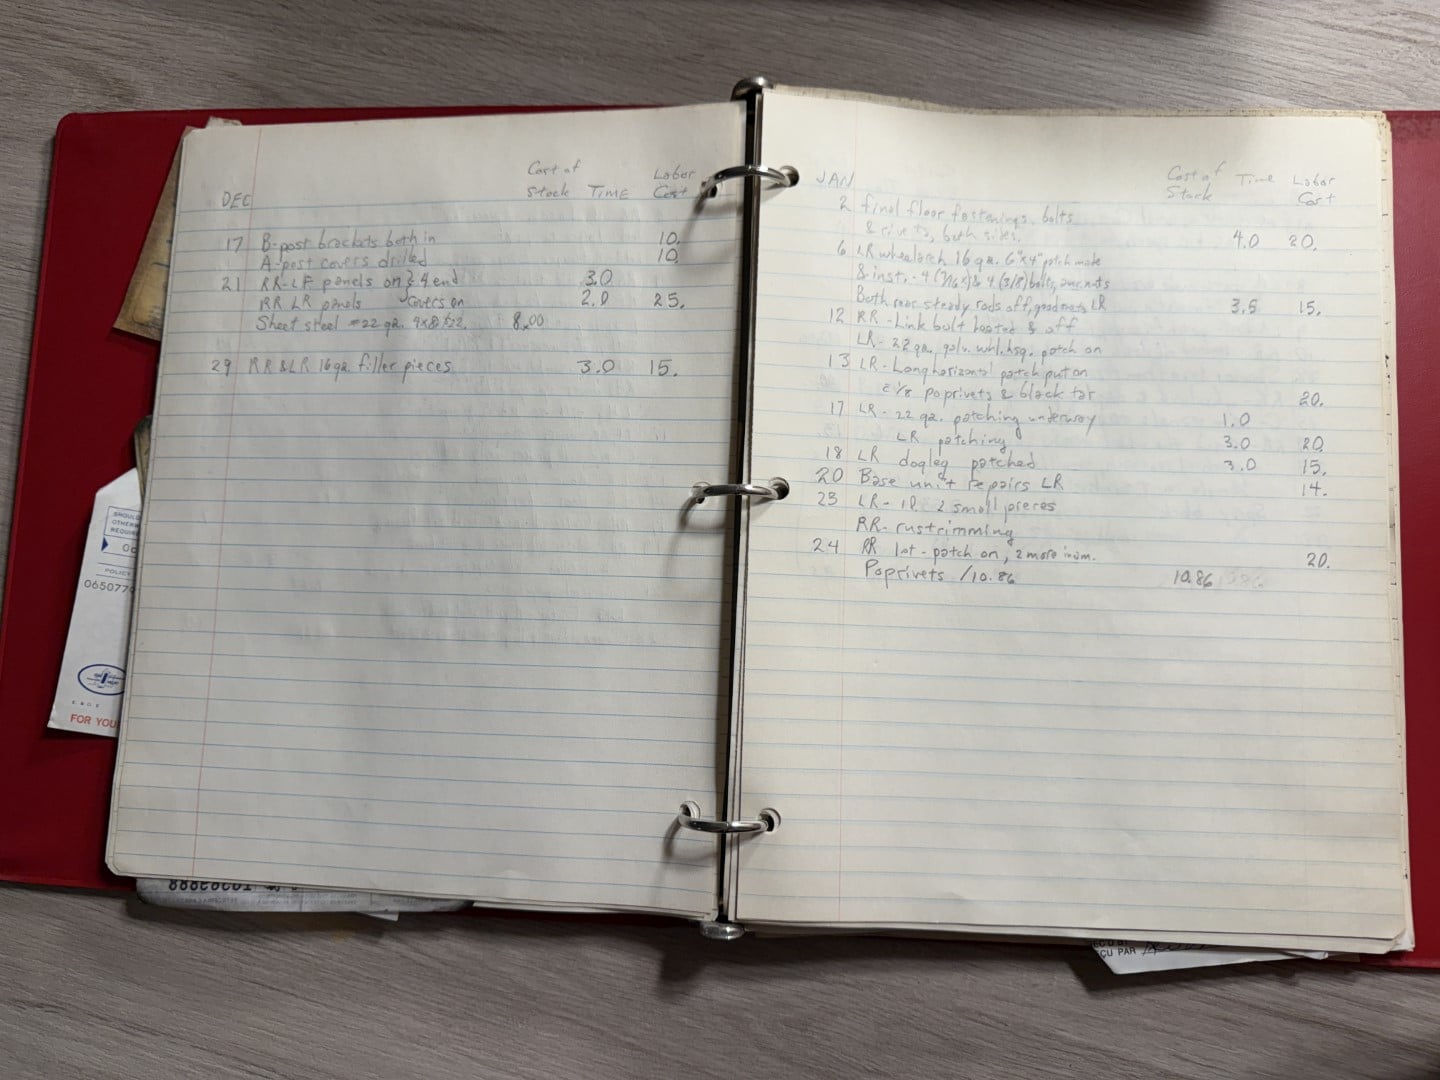 Cost of Labor
DEC Stock TIME Cost
17 B-post brackets both in 10.
A-post covers drilled 10.
21 RR-LF panels on } 4 end 3.0
RR LR panels } covers on 2.0 25.
Sheet steel #22 ga. 8.00
29 RR & LR 16 ga. filler pieces 3.0 15.
SHOULD
OTHERW
REQUIRE
POLICY
065077
FOR YOU
JAN Cost of Time Labor
Stock Cost
2 final floor fastenings, bolts
& rivets, both sides. 4.0 20.
6 LR wheelarch 16 ga. 6"x4" patch made
& inst. - 4 (3/16 x) & 4 (3/8) bolts, nuts
Both rear steady rods off, LR 3.5 15.
12 RR - Link bolt heated & off
LR - 22 ga. galv. whl. hsg. patch on
13 LR - Long horizontal patch put on
1/8 poprivets & black tar 20.
17 LR - 22 ga. patching underway 1.0
LR patching 3.0 20
18 LR dogleg patched 3.0 15.
20 Base unit repairs LR 14.
23 LR - 2 small pieces
RR - rustrimming
24 RR 1st - patch on, 2 more 20.
Poprivets /10.86 10.86
CU PAR